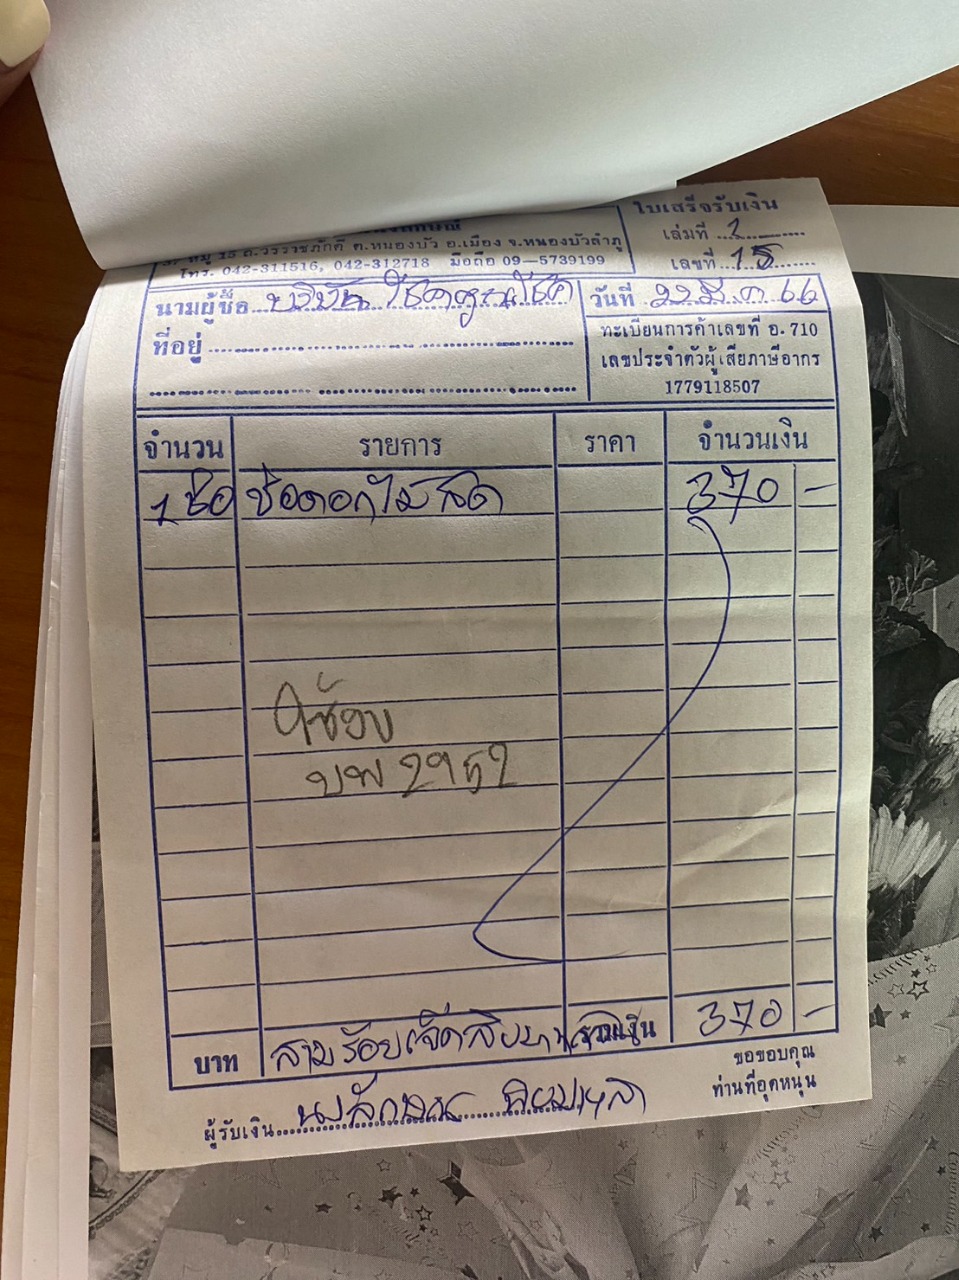 ใบเสร็จรับเงิน
37 หมู่ 15 ถ.วรราชภักดี ต.หนองบัว อ.เมือง จ.หนองบัวลำภู
เล่มที่ 1
โทร. 042-311516, 042-312718 มือถือ 09-5739199
เลขที่ 15
นามผู้ซื้อ บริษัท โชคคูณโชค
วันที่ 22 มี.ค 66
ที่อยู่
ทะเบียนการค้าเลขที่ อ. 710
เลขประจำตัวผู้เสียภาษีอากร
1779118507
จำนวน รายการ ราคา จำนวนเงิน
1 ช่อ ช่อดอกไม้สด 370 -
ใช้งบ
บพ 2952
บาท สามร้อยเจ็ดสิบบาท รวมเงิน 370 -
ขอขอบคุณ
ท่านที่อุดหนุน
ผู้รับเงิน